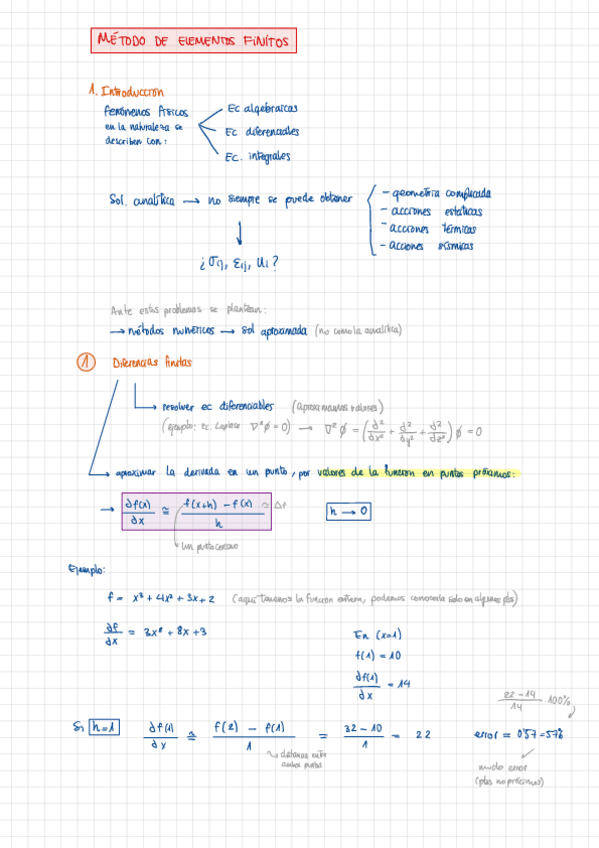 MÉTODO DE ELEMENTOS FINITOS
1. Introducción
Fenómenos físicos
en la naturaleza se
describen con:
Ec algebraicas
Ec diferenciales
Ec. integrales
Sol. analítica → no siempre se puede obtener
- geometría complicada
- acciones estáticas
- acciones térmicas
- acciones sísmicas
¿σij, εij, ui?
Ante estos problemas se plantean:
→ métodos numéricos → sol aproximada (no como la analítica)
1 Diferencias finitas
resolver ec diferenciables (aproximamos valores)
(ejemplo: Ec. Laplace ∇²ϕ = 0) → ∇²ϕ = (d²/dx² + d²/dy² + d²/dz²) ϕ = 0
aproximar la derivada en un punto, por valores de la función en puntos próximos:
→ ∂f(x)/∂x ≅ f(x+h) - f(x)/h ≈ Δf
h → 0
un punto cercano
Ejemplo:
f = x³ + 4x² + 3x + 2 (aquí tenemos la función entera, podemos conocerla solo en algunos ptos)
∂f/∂x = 3x² + 8x + 3
En (x=1)
f(1) = 10
∂f(1)/∂x = 14
22 - 14/14 · 100%
Si h=1 ∂f(1)/∂x ≅ f(2) - f(1)/1 = 32 - 10/1 = 22 error = 0'57 = 57%
distancia entre
ambos puntos
mucho error
(ptos no próximos)